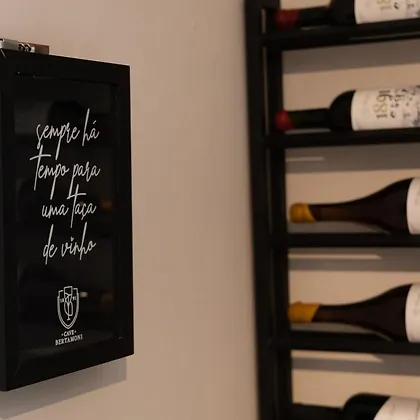 sempre há
tempo para
uma taça
de vinho
CAVE
BERTAMONI
1891
1891